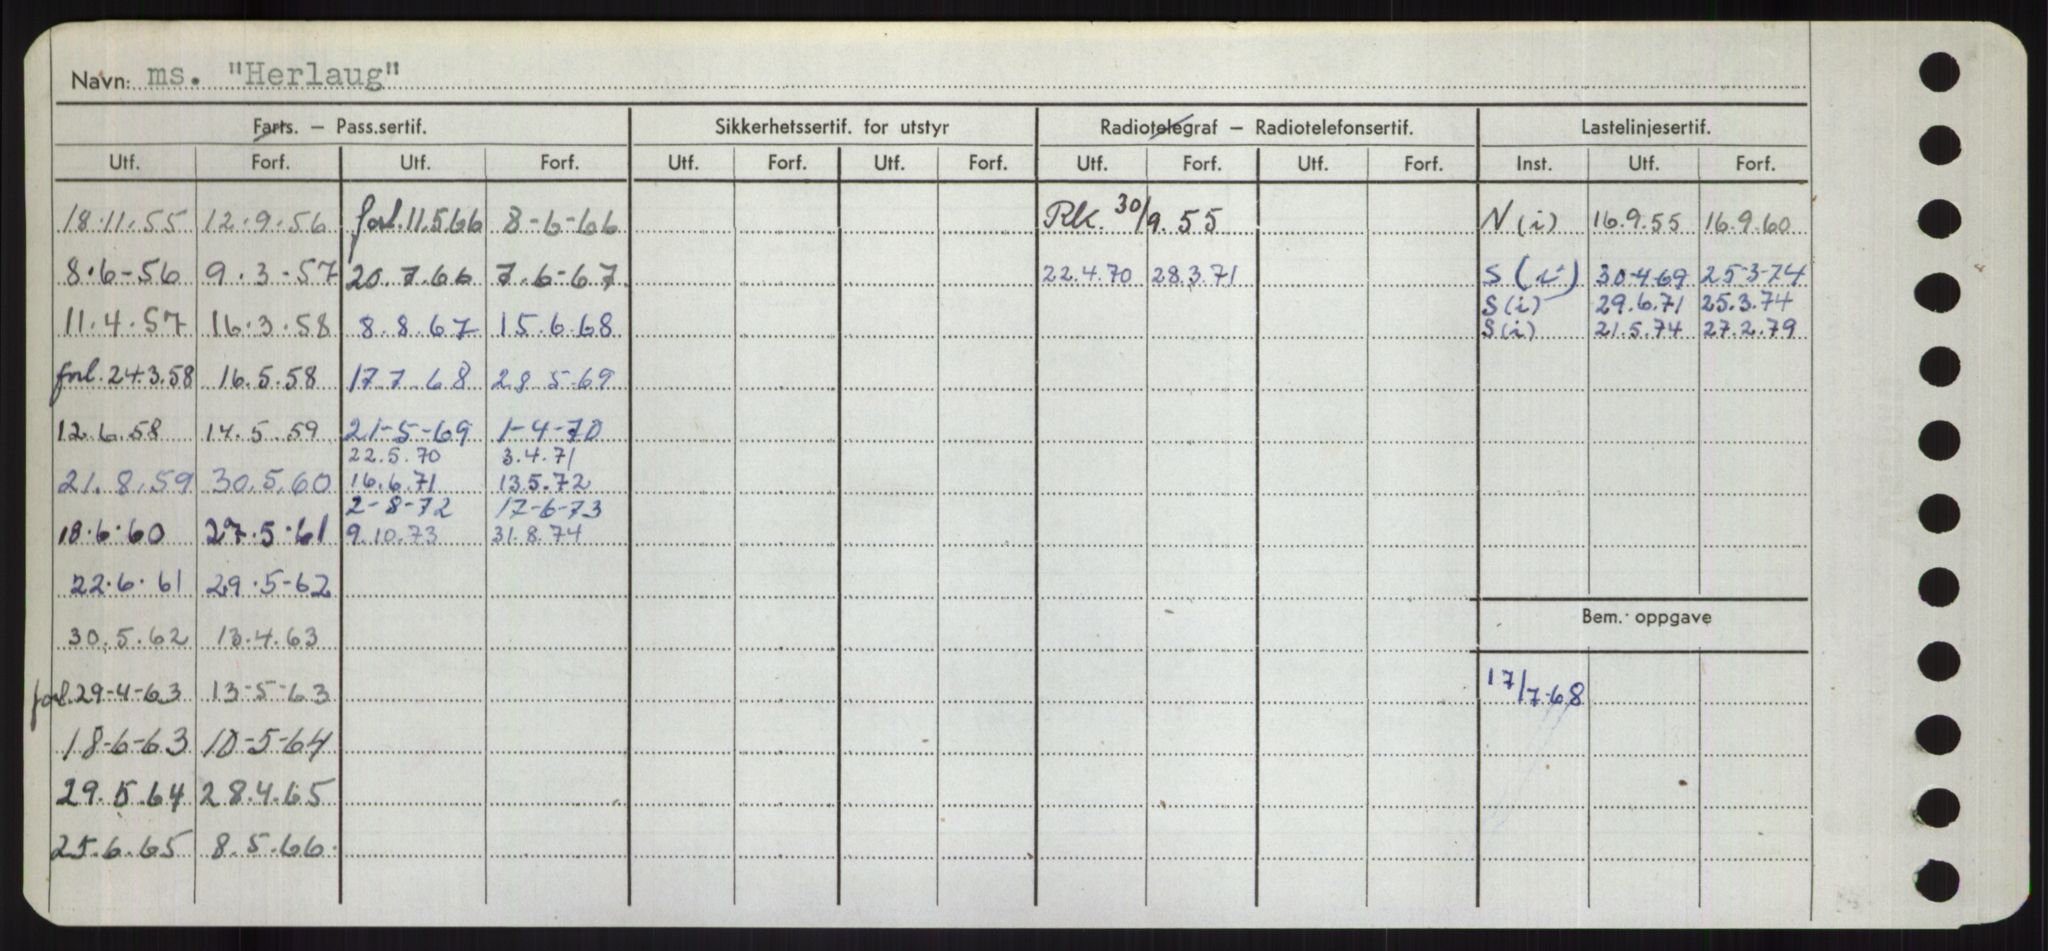 Navn: ms. "Herlaug"
Farts. – Pass.sertif. Sikkerhetssertif. for utstyr Radiotelegraf – Radiotelefonsertif. Lastelinjesertif.
Utf. Forf. Utf. Forf. Utf. Forf. Utf. Forf. Utf. Forf. Utf. Forf. Inst. Utf. Forf.
18.11.55 12.9.56 forl. 11.5.66 8-6-66 Rk. 30/9.55 N (i) 16.9.55 16.9.60
8.6-56 9.3-57 20.7.66 7.6-67 22.4.70 28.3.71 S (i) 30-4-69 25-3-74
S (i) 29.6.71 25.3.74
11.4.57 16.3.58 8.8.67 15.6.68 S (i) 21.5.74 27.2.79
forl. 24.3.58 16.5.58 17.7.68 28.5-69
12.6.58 14.5.59 21-5-69 1-4-70
22.5.70 3.4.71
21.8.59 30.5.60 16.6.71 13.5.72
2-8-72 17-6-73
18.6.60 27.5.61 9.10.73 31.8.74
22.6.61 29.5-62
Bem. oppgave
30.5.62 13.4.63
forl. 29-4-63 13-5-63 17/7-68
18-6-63 10-5-64
29.5.64 28.4.65
25.6.65 8.5.66